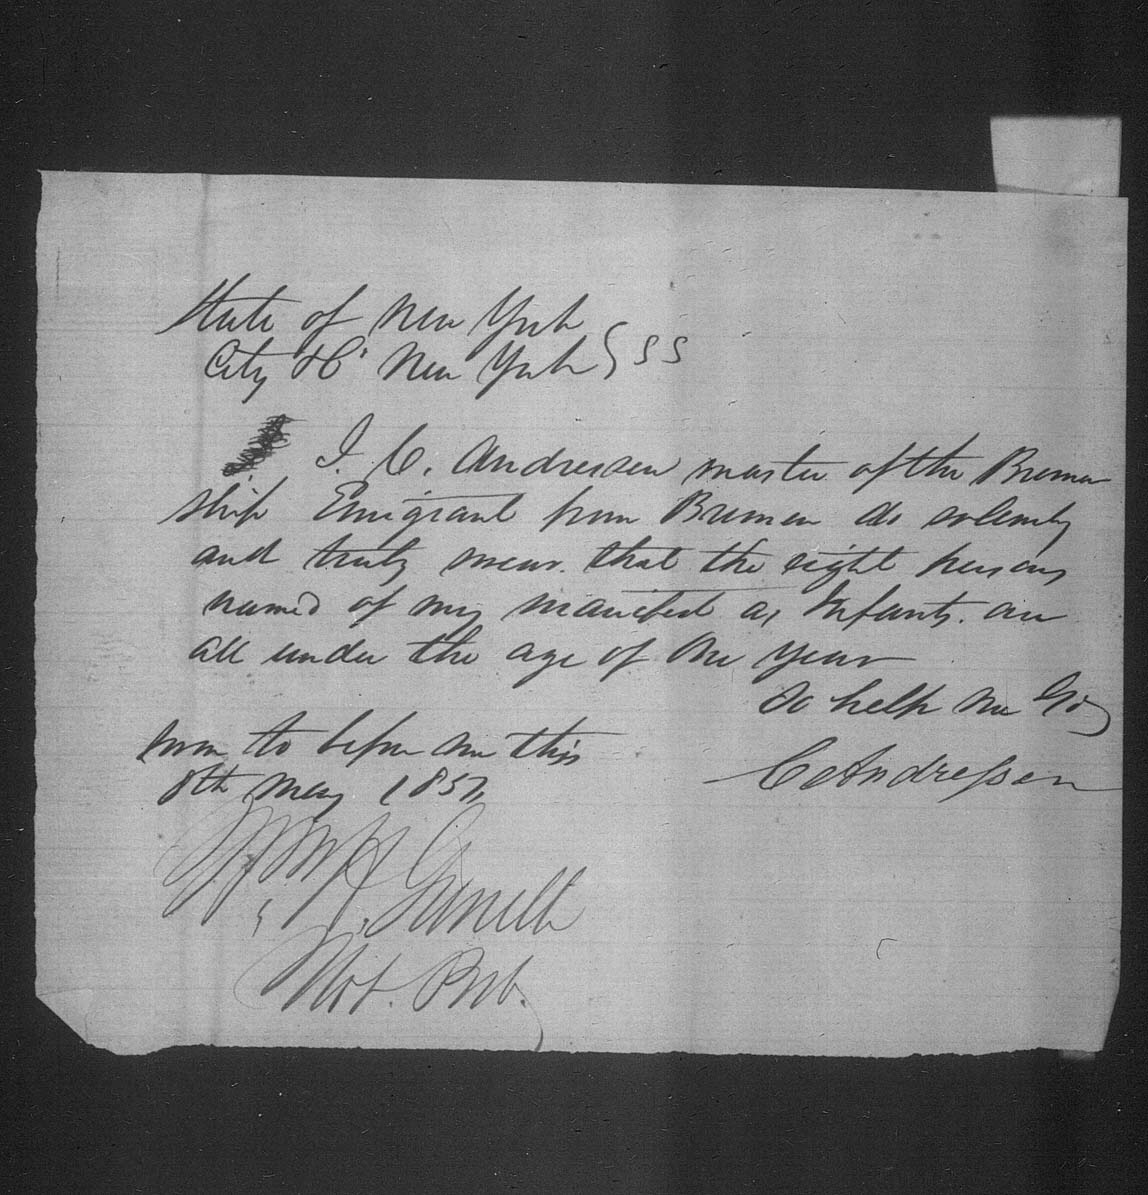 State of New York
City & Co New York } SS
I. C. Andressen master of the Bremen
Ship Emigrant from Bremen do solemly
and truly swear that the eight persons
named of my manifest as Infants. are
all under the age of One year
So help me God
Sworn to before me this
8th May 1857
C Andressen
Not. Pub.